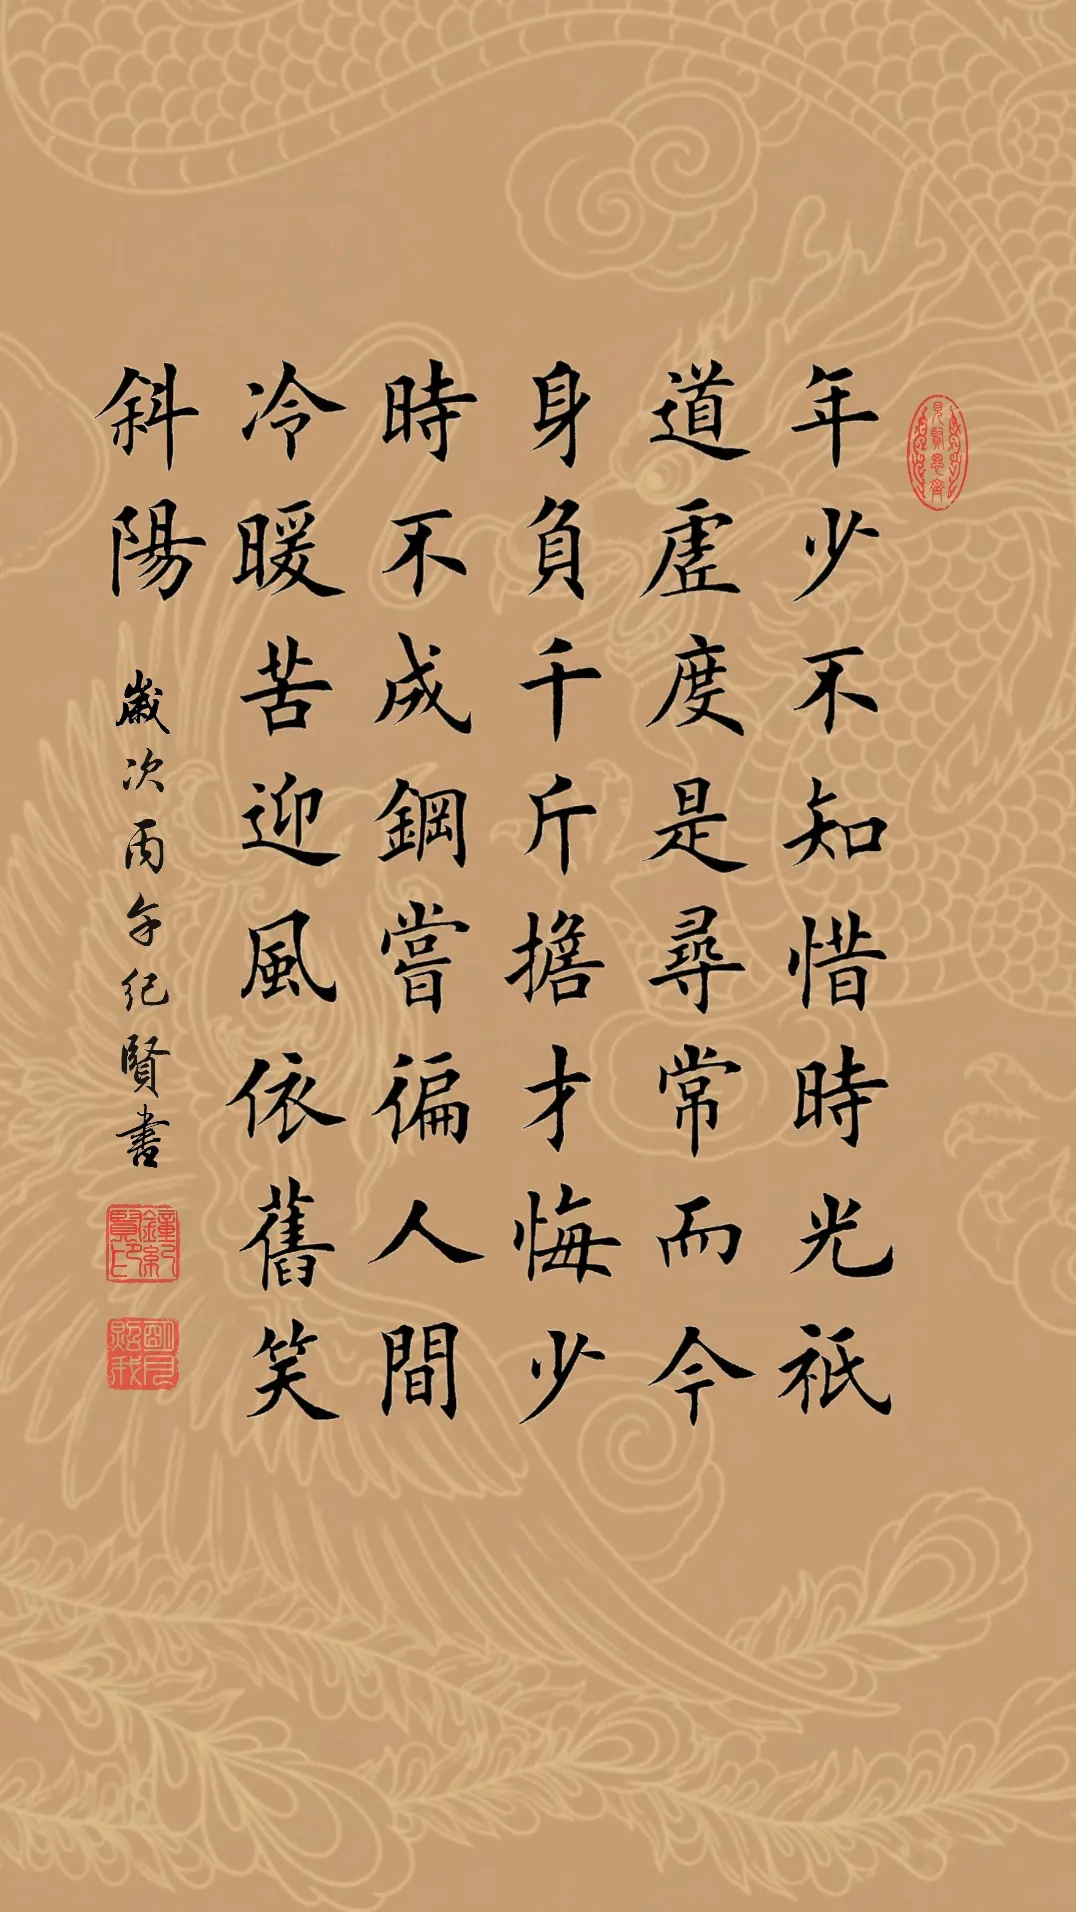 年少不知惜時光祇
道虛度是尋常而今
身負千斤擔才悔少
時不成鋼嘗徧人間
冷暖苦迎風依舊笑
斜陽
歲次丙午紀賢書
見賢思齊
鐘紀賢印